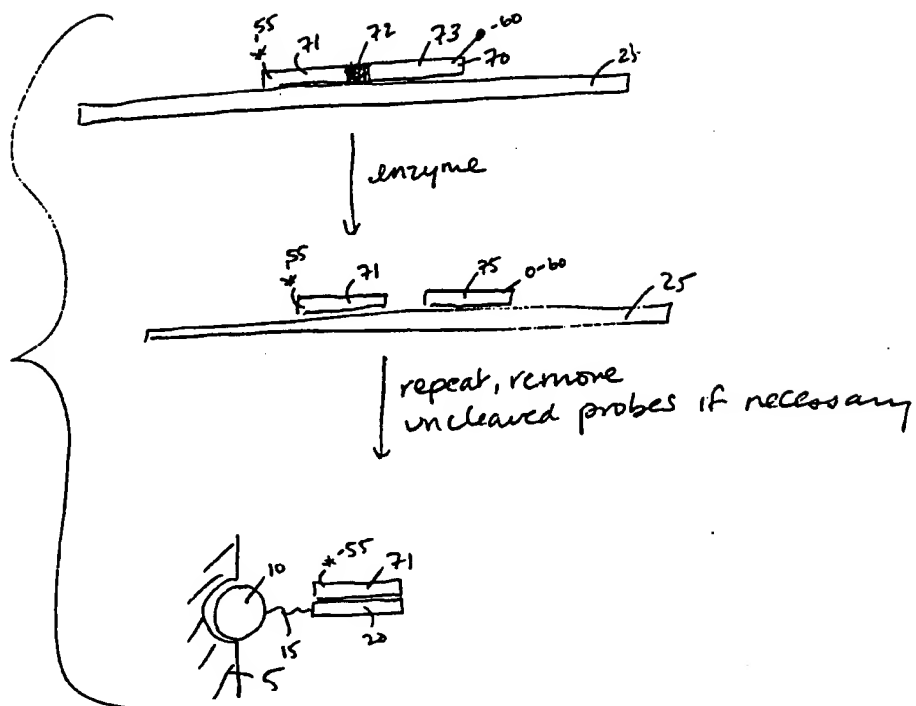 55 71 72 73 -60
* 70
25
enzyme
55 71 75 0-60
* 25
repeat, remove
uncleaved probes if necessary
10 *-55 71
15 20
5